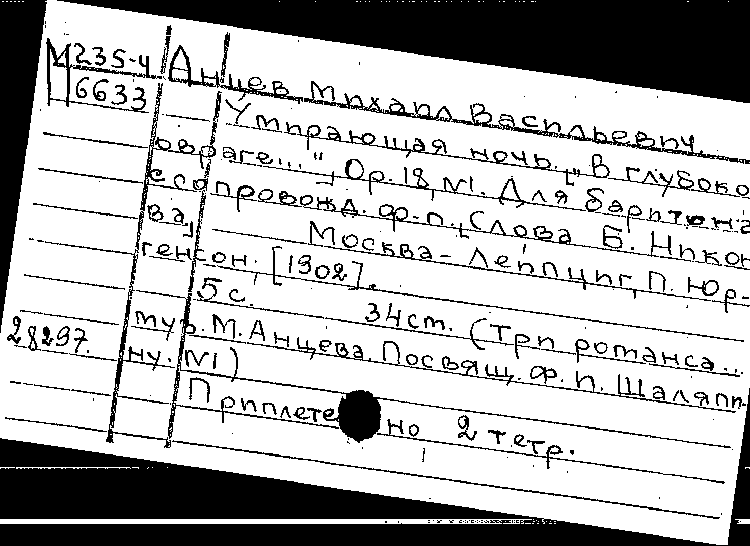 М 235-4
6633
Анцев, Михаил Васильевич.
Умирающая ночь. ["В глубоко
овраге..."], Op. 18, N1. Для баритона
с сопровожд. ф.-п. [Слова Б. Никон
ва]
Москва - Лейпциг, П. Юр-
генсон, [1902].
5 с. 34 cm. (Три романса...
муз. М. Анцева. Посвящ. Ф. И. Шаляпи-
ну. N1)
28297.
Приплетено 2 тетр.